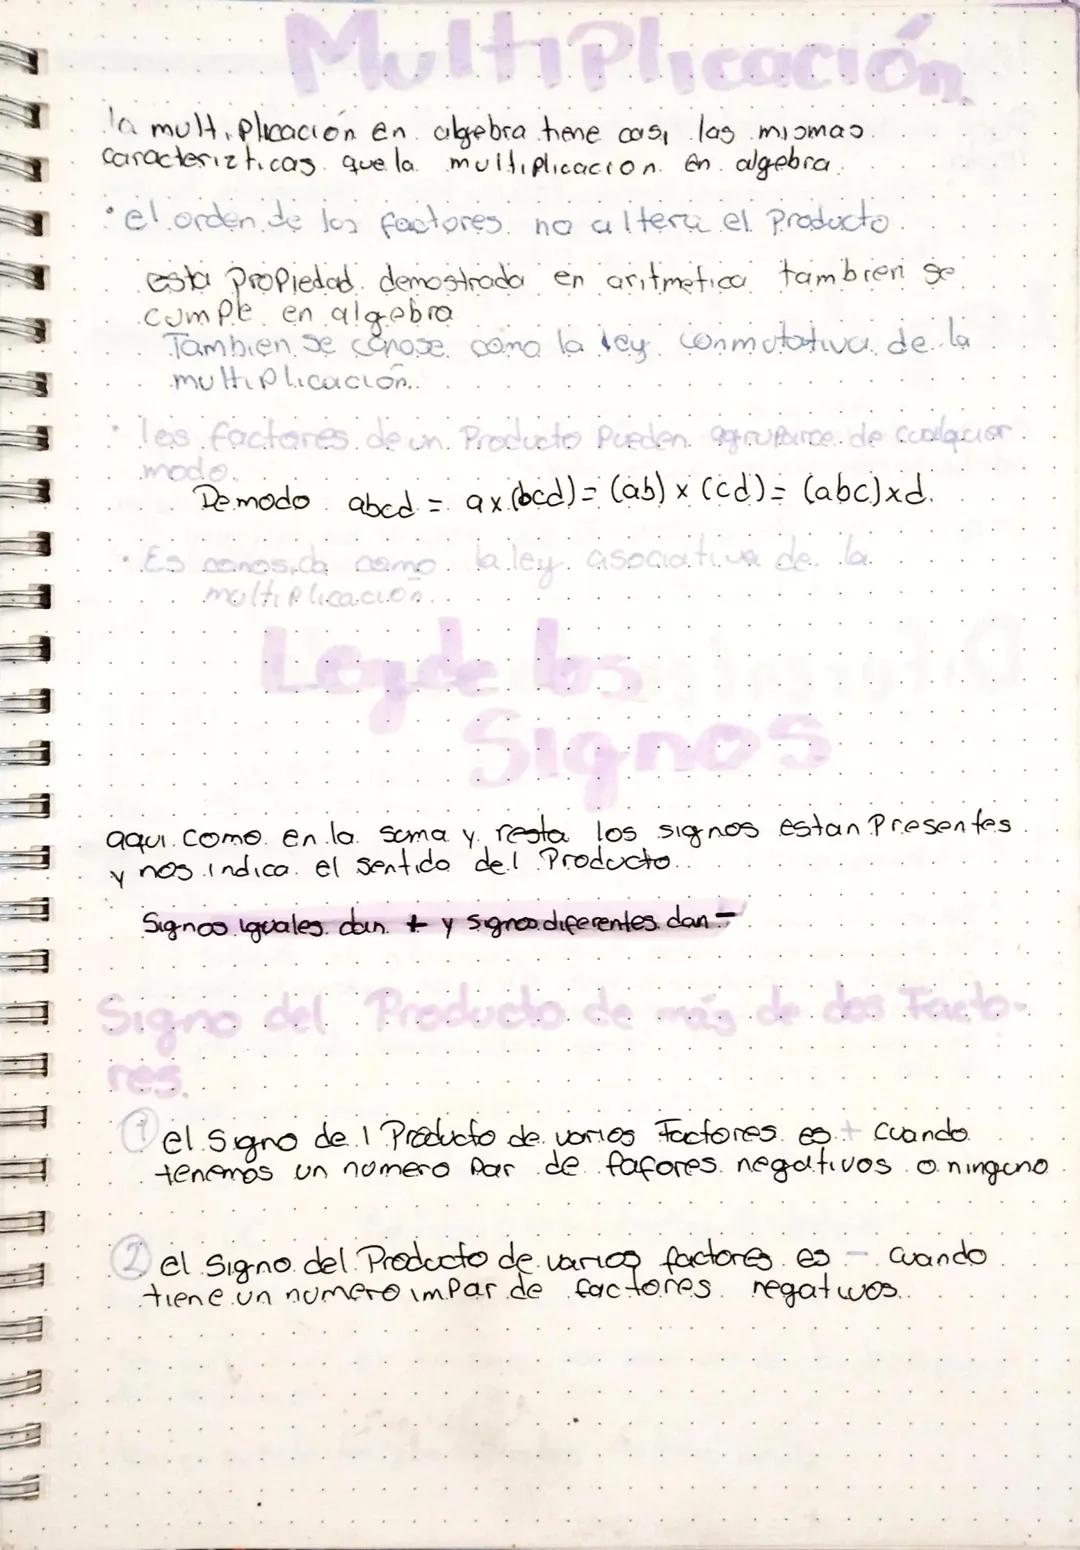 Multiplicación
la multiplicación en algebra tiene casi las mismas
caracterizticas que la multiplicacion en algebra
• el orden de los factores no altera el Producto
esta Propiedad demostrada en aritmetica tambien se
cumple en algebra
Tambien se conose como la ley conmutativa de la
multiplicación.
• los factores de un Producto Pueden agruparce de cualquier
modo.
De modo abcd = a x (bcd) = (ab) x (cd) = (abc) x d.
• Es conosida como la ley asociativa de la
multiplicación.
Ley de los
Signos
aqui como en la suma y resta los signos estan Presentes
y nos indica el sentido del Producto.
Signos iguales dan + y signos diferentes dan -
Signo del Producto de más de dos Facto-
res.
① el signo del Producto de varios Factores es + cuando
tenemos un numero Par de fafores negativos o ninguno
② el signo del Producto de varios factores es - cuando
tiene un numero imPar de factores negativos.